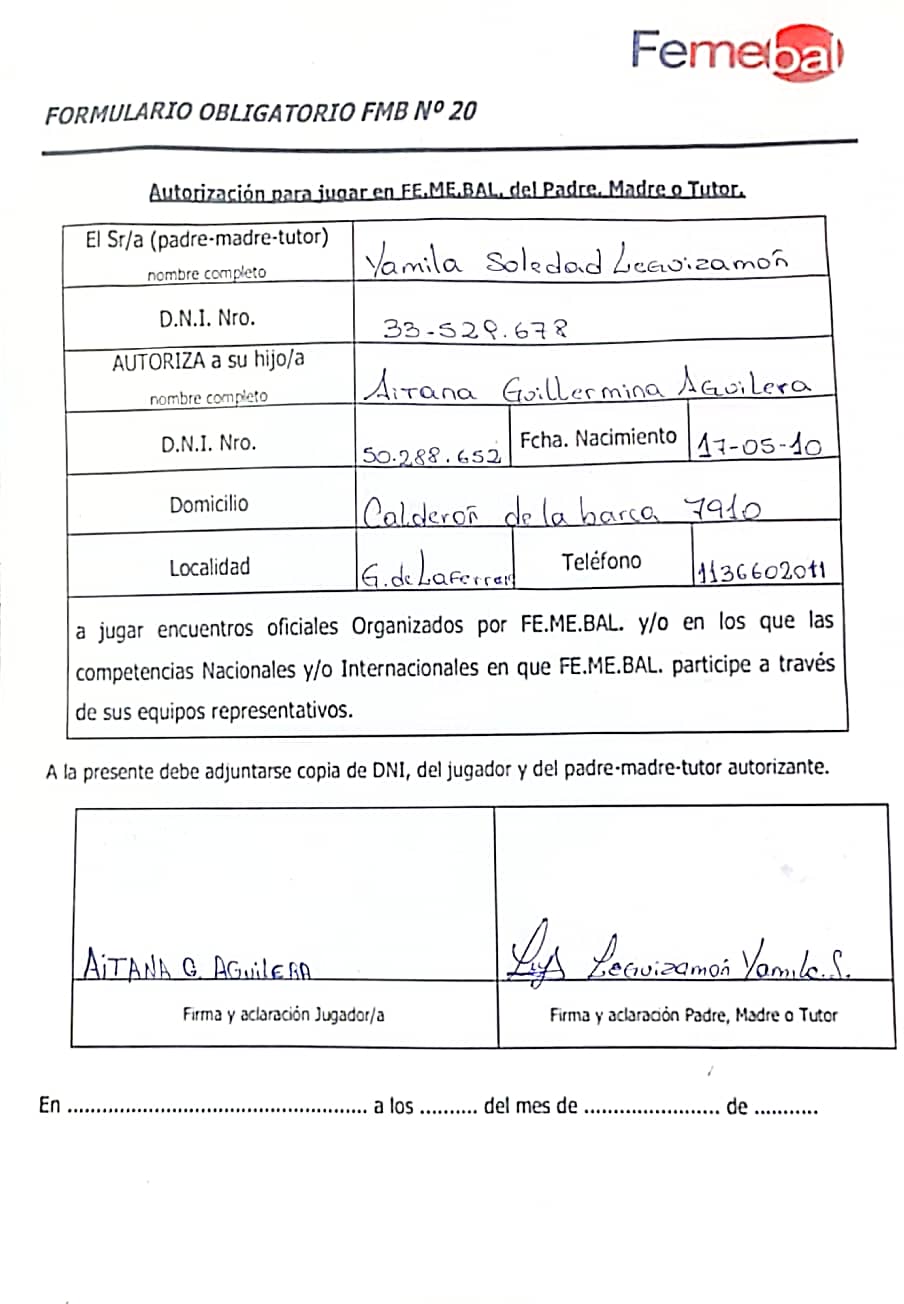 Femebal
FORMULARIO OBLIGATORIO FMB Nº 20
Autorización para jugar en FE.ME.BAL. del Padre, Madre o Tutor.
El Sr/a (padre-madre-tutor)
nombre completo
Yamila Soledad Leguizamoñ
D.N.I. Nro.
33-529.678
AUTORIZA a su hijo/a
nombre completo
Aitana Guillermina Aguilera
D.N.I. Nro.
50.288.652
Fcha. Nacimiento
17-05-10
Domicilio
Calderoñ de la barca 7910
Localidad
G. de LaFerrere
Teléfono
1136602011
a jugar encuentros oficiales Organizados por FE.ME.BAL. y/o en los que las
competencias Nacionales y/o Internacionales en que FE.ME.BAL. participe a través
de sus equipos representativos.
A la presente debe adjuntarse copia de DNI, del jugador y del padre-madre-tutor autorizante.
AiTANA G. AGUiLERA
Leguizamoñ Yamila.S.
Firma y aclaración Jugador/a
Firma y aclaración Padre, Madre o Tutor
En .................................................... a los .......... del mes de ........................ de ...........